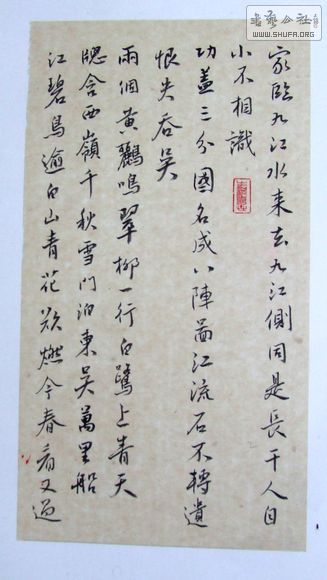 家臨九江水來去九江側同是長干人自
小不相識
功蓋三分國名成八陣啚江流石不轉遺
恨失吞吴
兩個黃鸝鳴翠柳一行白鷺上青天
窗含西嶺千秋雪門泊東吴萬里船
江碧鳥逾白山青花欲燃今春看又過
書法公社
www.SHUFA.ORG